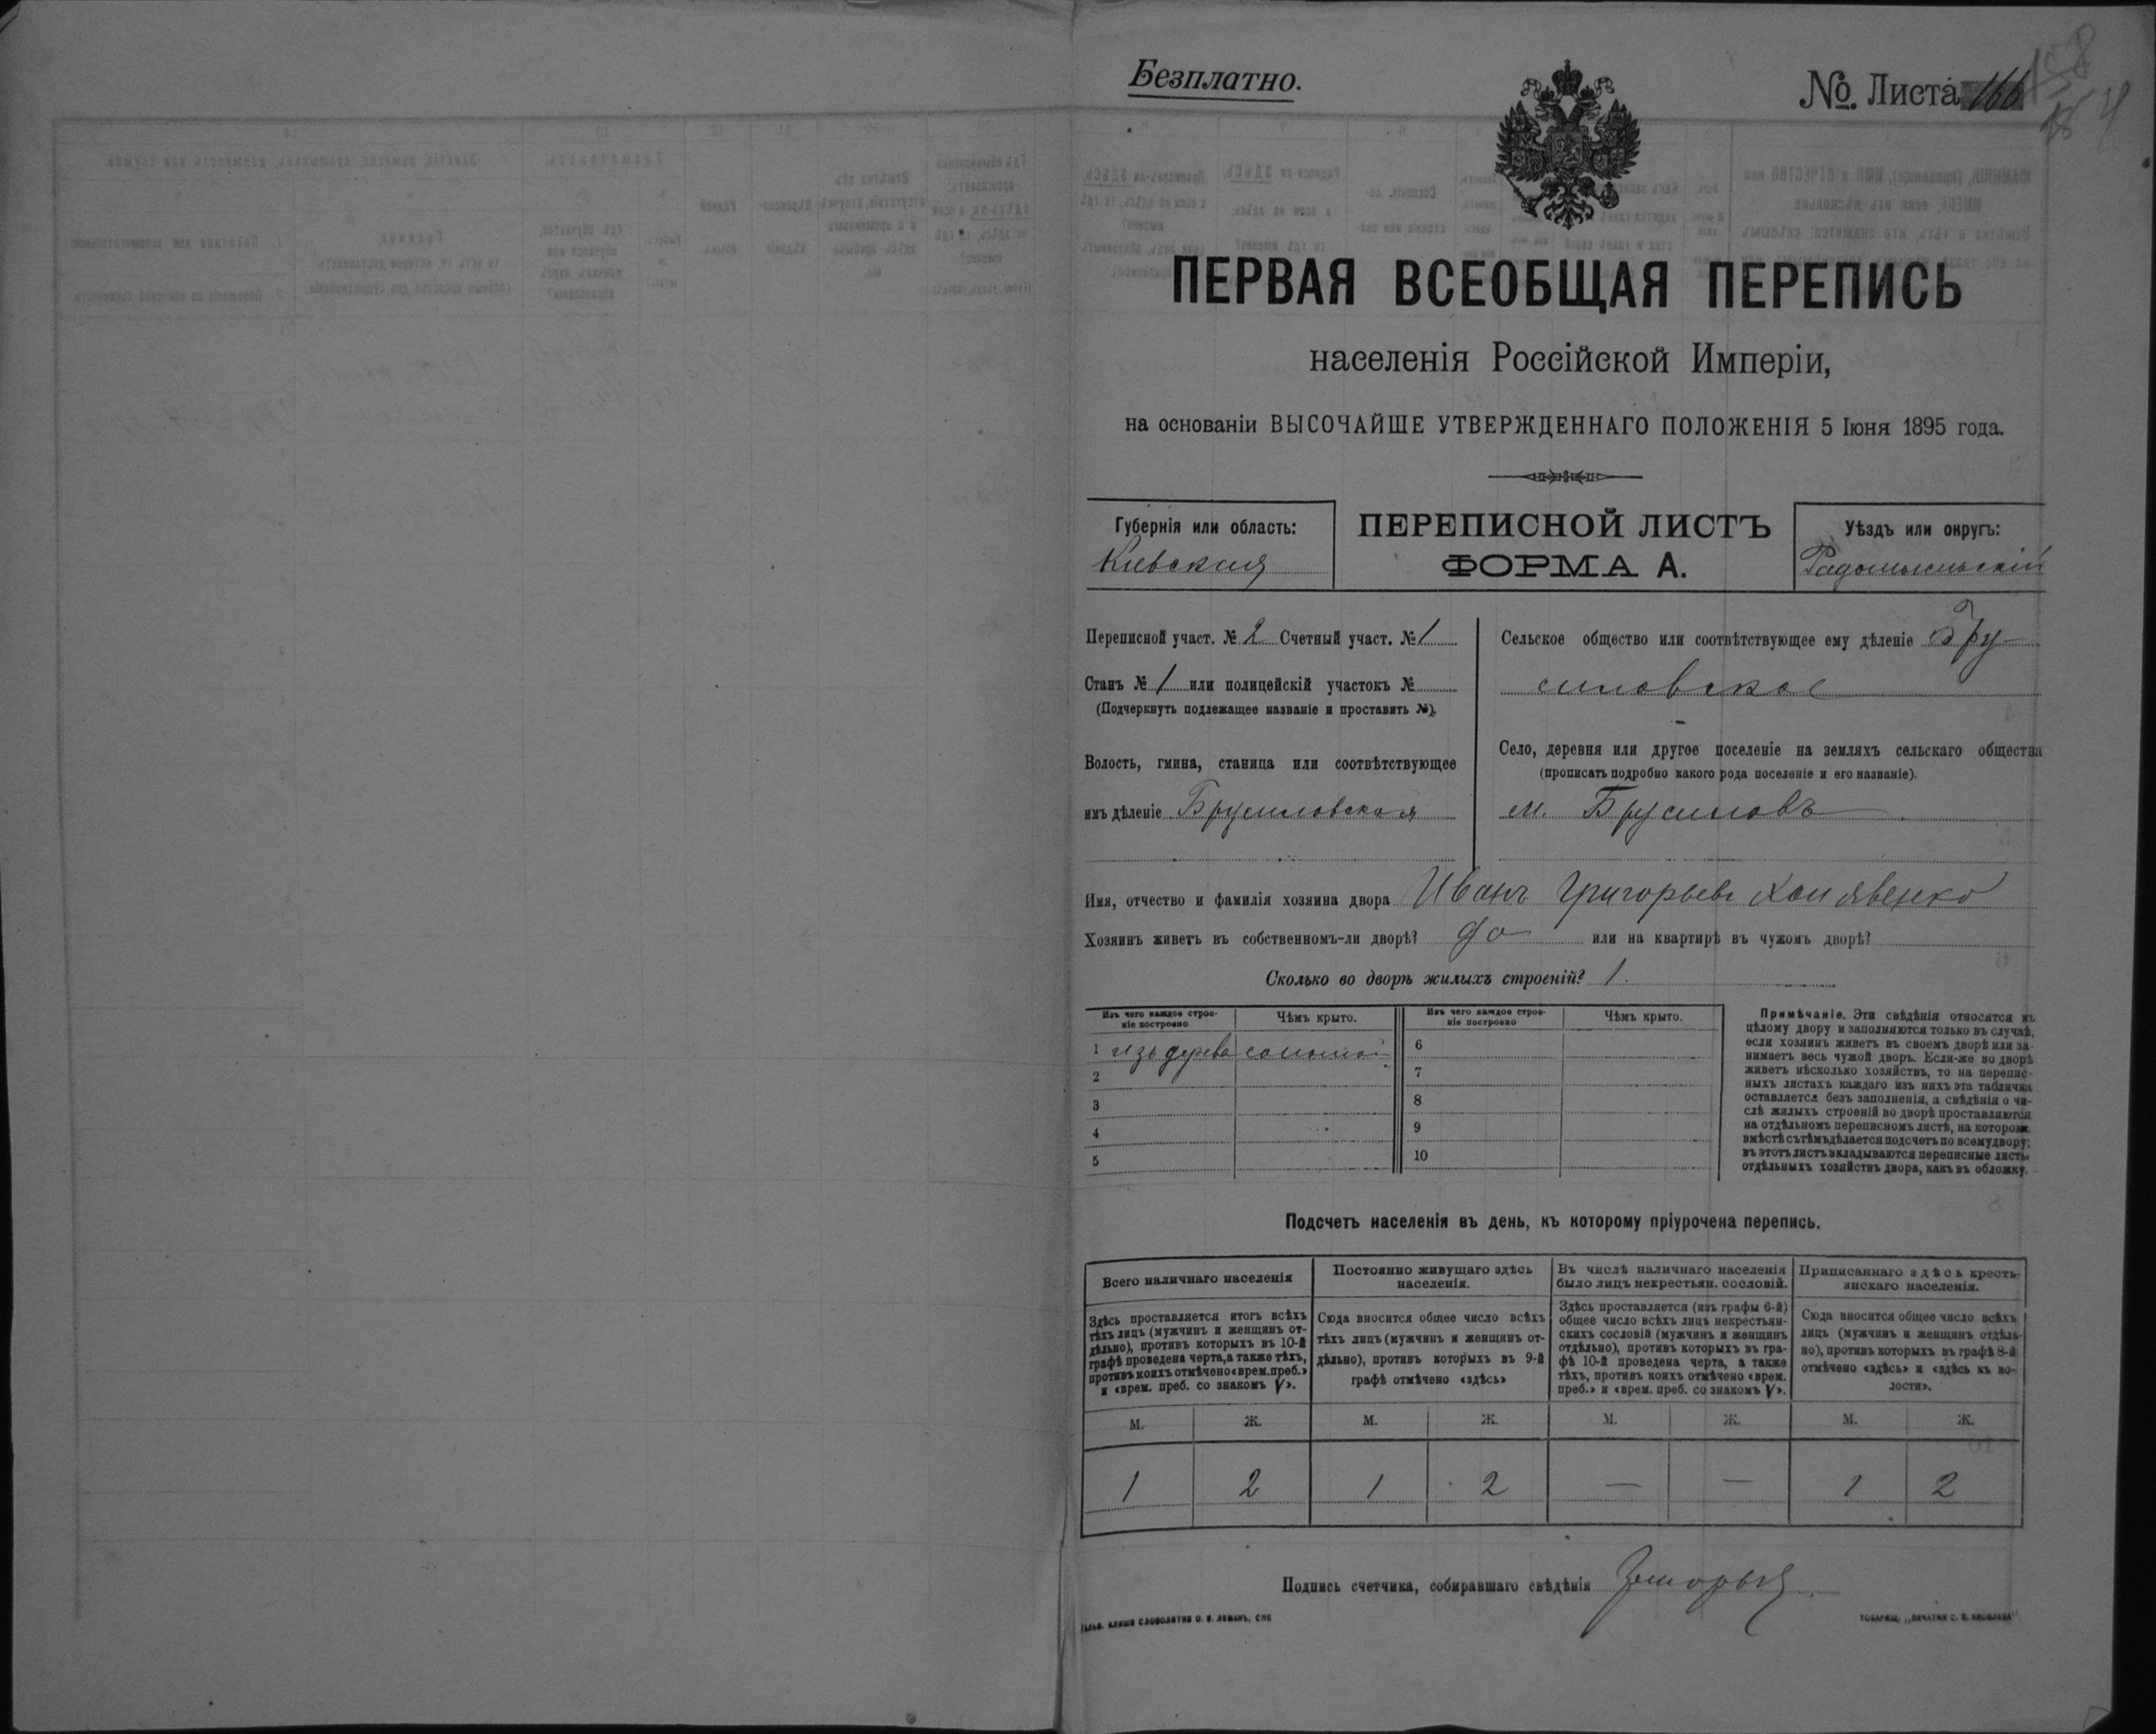 Безплатно.
№. Листа 166
ПЕРВАЯ ВСЕОБЩАЯ ПЕРЕПИСЬ
населенія Россійской Имперіи,
на основаніи ВЫСОЧАЙШЕ УТВЕРЖДЕННАГО ПОЛОЖЕНІЯ 5 Іюня 1895 года.
Губернія или область:
Кіевская
ПЕРЕПИСНОЙ ЛИСТЪ
ФОРМА А.
Уѣздъ или округъ:
Радомысльскій
Переписной участ. № 2 Счетный участ. № 1
Станъ № 1 или полицейскій участокъ №
(Подчеркнуть подлежащее названіе и проставить №).
Волость, гмина, станица или соотвѣтствующее
имъ дѣленіе Брусиловская
Сельское общество или соотвѣтствующее ему дѣленіе Бру-
силовское
Село, деревня или другое поселеніе на земляхъ сельскаго общества
(прописать подробно какого рода поселеніе и его названіе).
м. Брусиловъ
Имя, отчество и фамилія хозяина двора Иванъ Григорьевъ
Хозяинъ живетъ въ собственномъ-ли дворѣ? да или на квартирѣ въ чужомъ дворѣ?
Сколько во дворѣ жилыхъ строеній? 1.
Изъ чего каждое строе-
ніе построено
Чѣмъ крыто.
Изъ чего каждое строе-
ніе построено
Чѣмъ крыто.
1 изъ дерева соломой 6
2 7
3 8
4 9
5 10
Примѣчаніе. Эти свѣдѣнія относятся къ
цѣлому двору и заполняются только въ случаѣ,
если хозяинъ живетъ въ своемъ дворѣ или за-
нимаетъ весь чужой дворъ. Если-же во дворѣ
живетъ нѣсколько хозяйствъ, то на перепис-
ныхъ листахъ каждаго изъ нихъ эта табличка
оставляется безъ заполненія, а свѣдѣнія о чи-
слѣ жилыхъ строеній во дворѣ проставляются
на отдѣльномъ переписномъ листѣ, на которомъ
вмѣстѣ съ тѣмъ дѣлается подсчетъ по всему двору;
въ этотъ листъ вкладываются переписные листы
отдѣльныхъ хозяйствъ двора, какъ въ обложку.
Подсчетъ населенія въ день, къ которому пріурочена перепись.
Всего наличнаго населенія
Здѣсь проставляется итогъ всѣхъ
тѣхъ лицъ (мужчинъ и женщинъ от-
дѣльно), противъ которыхъ въ 10-й
графѣ проведена черта, а также тѣхъ,
противъ коихъ отмѣчено «врем. преб.»
и «врем. преб. со знакомъ V».
Постоянно живущаго здѣсь
населенія.
Сюда вносится общее число всѣхъ
тѣхъ лицъ (мужчинъ и женщинъ от-
дѣльно), противъ которыхъ въ 9-й
графѣ отмѣчено «здѣсь»
Въ числѣ наличнаго населенія
было лицъ некрестьян. сословій.
Здѣсь проставляется (изъ графы 6-й)
общее число всѣхъ лицъ некрестьян-
скихъ сословій (мужчинъ и женщинъ
отдѣльно), противъ которыхъ въ гра-
фѣ 10-й проведена черта, а также
тѣхъ, противъ коихъ отмѣчено «врем.
преб.» и «врем. преб. со знакомъ V».
Приписаннаго здѣсь кресть-
янскаго населенія.
Сюда вносится общее число всѣхъ
лицъ (мужчинъ и женщинъ отдѣль-
но), противъ которыхъ въ графѣ 8-й
отмѣчено «здѣсь» и «здѣсь къ во-
лости».
М. Ж. М. Ж. М. Ж. М. Ж.
1 2 1 2 — — 1 2
Подпись счетчика, собиравшаго свѣдѣнія
ГАЛЬВ. КЛИШЕ СЛОВОЛИТНИ О. И. ЛЕМАНЪ, СПБ
ТОВАРИЩ. „ПЕЧАТНЯ С. П. ЯКОВЛЕВА"